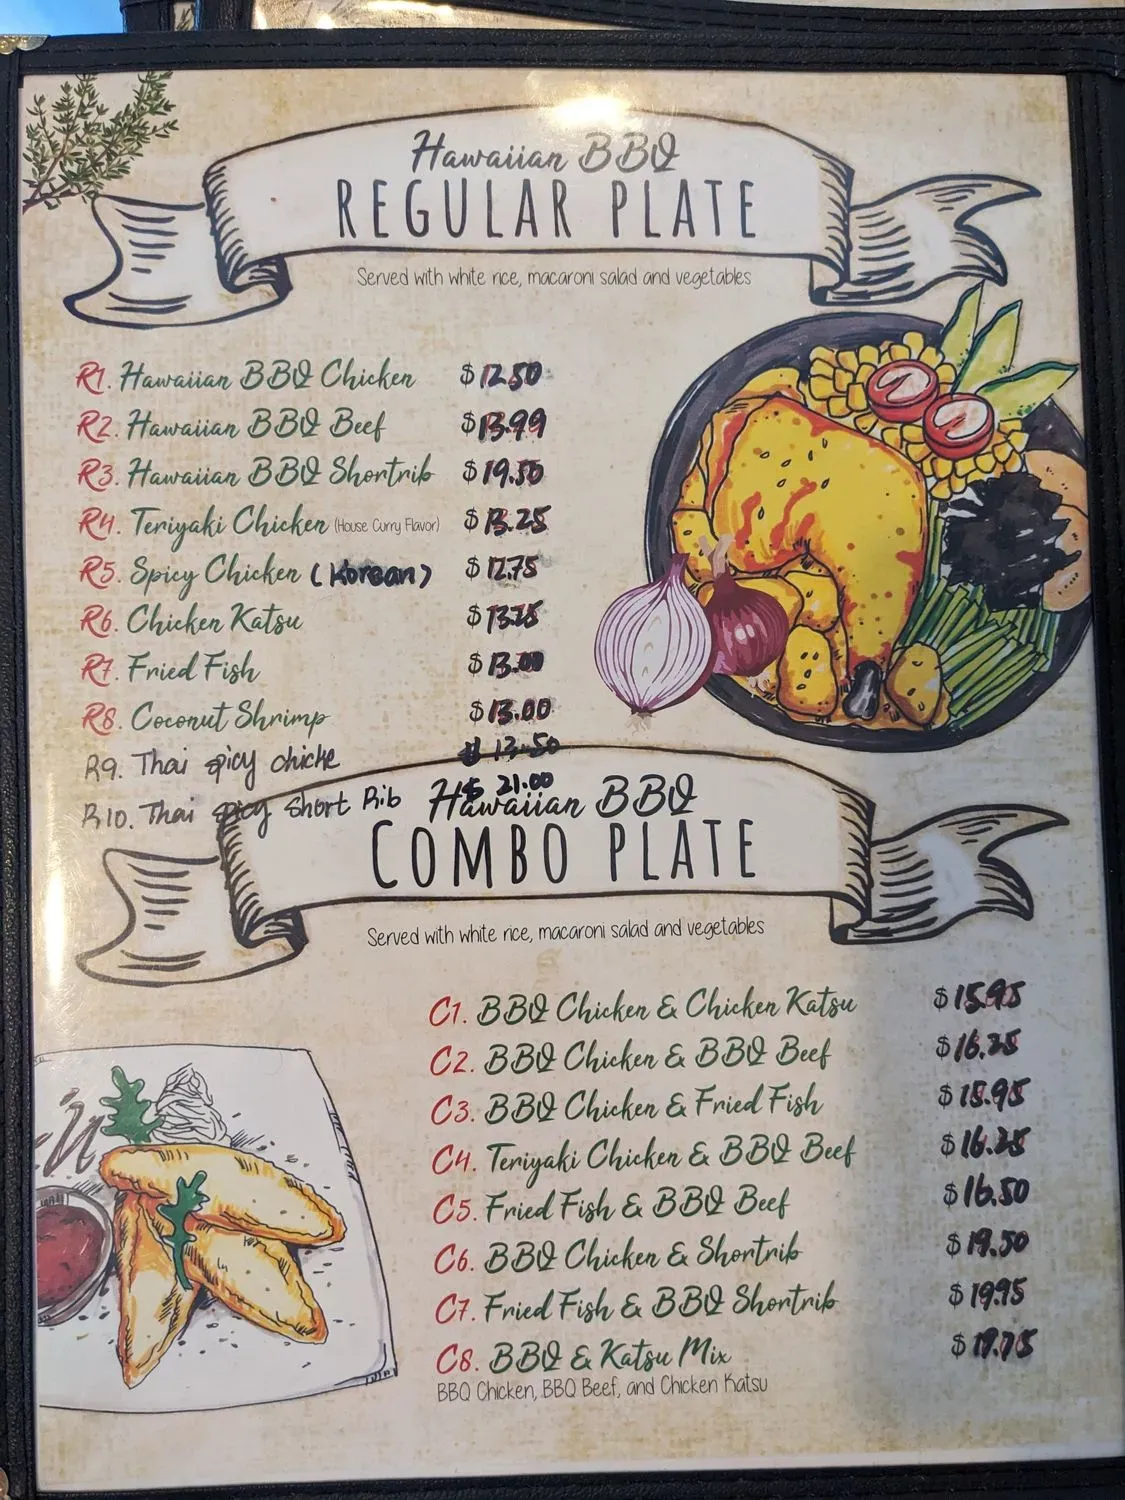 Hawaiian BBQ
REGULAR PLATE
Served with white rice, macaroni salad and vegetables
R1. Hawaiian BBQ Chicken $12.50
R2. Hawaiian BBQ Beef $13.99
R3. Hawaiian BBQ Shortrib $19.50
R4. Teriyaki Chicken (House Curry Flavor) $13.25
R5. Spicy Chicken (Korean) $12.75
R6. Chicken Katsu $13.25
R7. Fried Fish $13.00
R8. Coconut Shrimp $13.00
R9. Thai spicy chicke $13.50
R10. Thai spicy short Rib $21.00
Hawaiian BBQ
COMBO PLATE
Served with white rice, macaroni salad and vegetables
C1. BBQ Chicken & Chicken Katsu $15.95
C2. BBQ Chicken & BBQ Beef $16.25
C3. BBQ Chicken & Fried Fish $15.95
C4. Teriyaki Chicken & BBQ Beef $16.25
C5. Fried Fish & BBQ Beef $16.50
C6. BBQ Chicken & Shortrib $19.50
C7. Fried Fish & BBQ Shortrib $19.95
C8. BBQ & Katsu Mix
BBQ Chicken, BBQ Beef, and Chicken Katsu